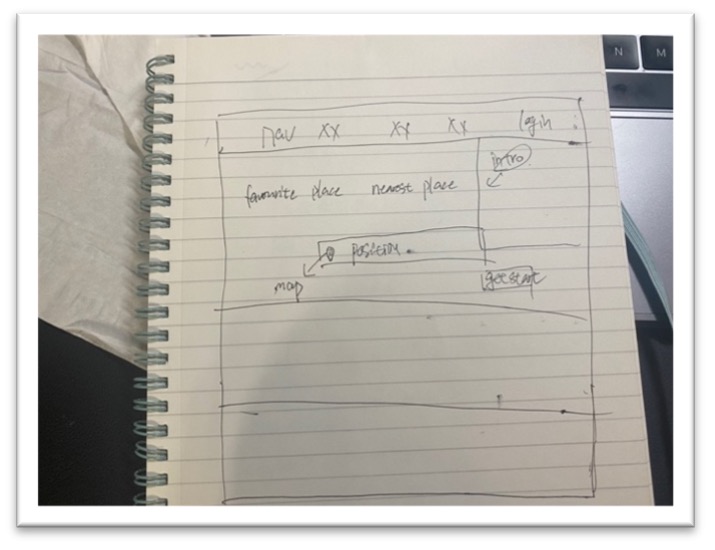 nav xx xx xx login :
intro
favourite place nearest place
position.
map
get start
N M